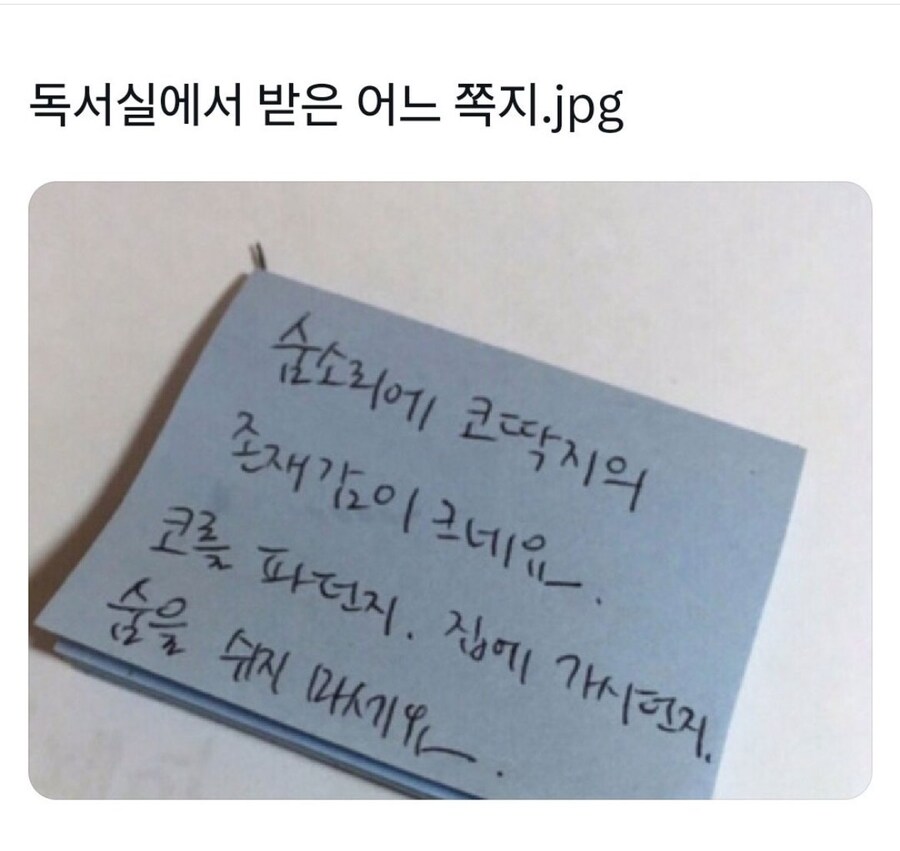 독서실에서 받은 어느 쪽지.jpg
숨소리에 코딱지의
존재감이 크네요.
코를 파던지. 집에 가시던지.
숨을 쉬지 마시기와.